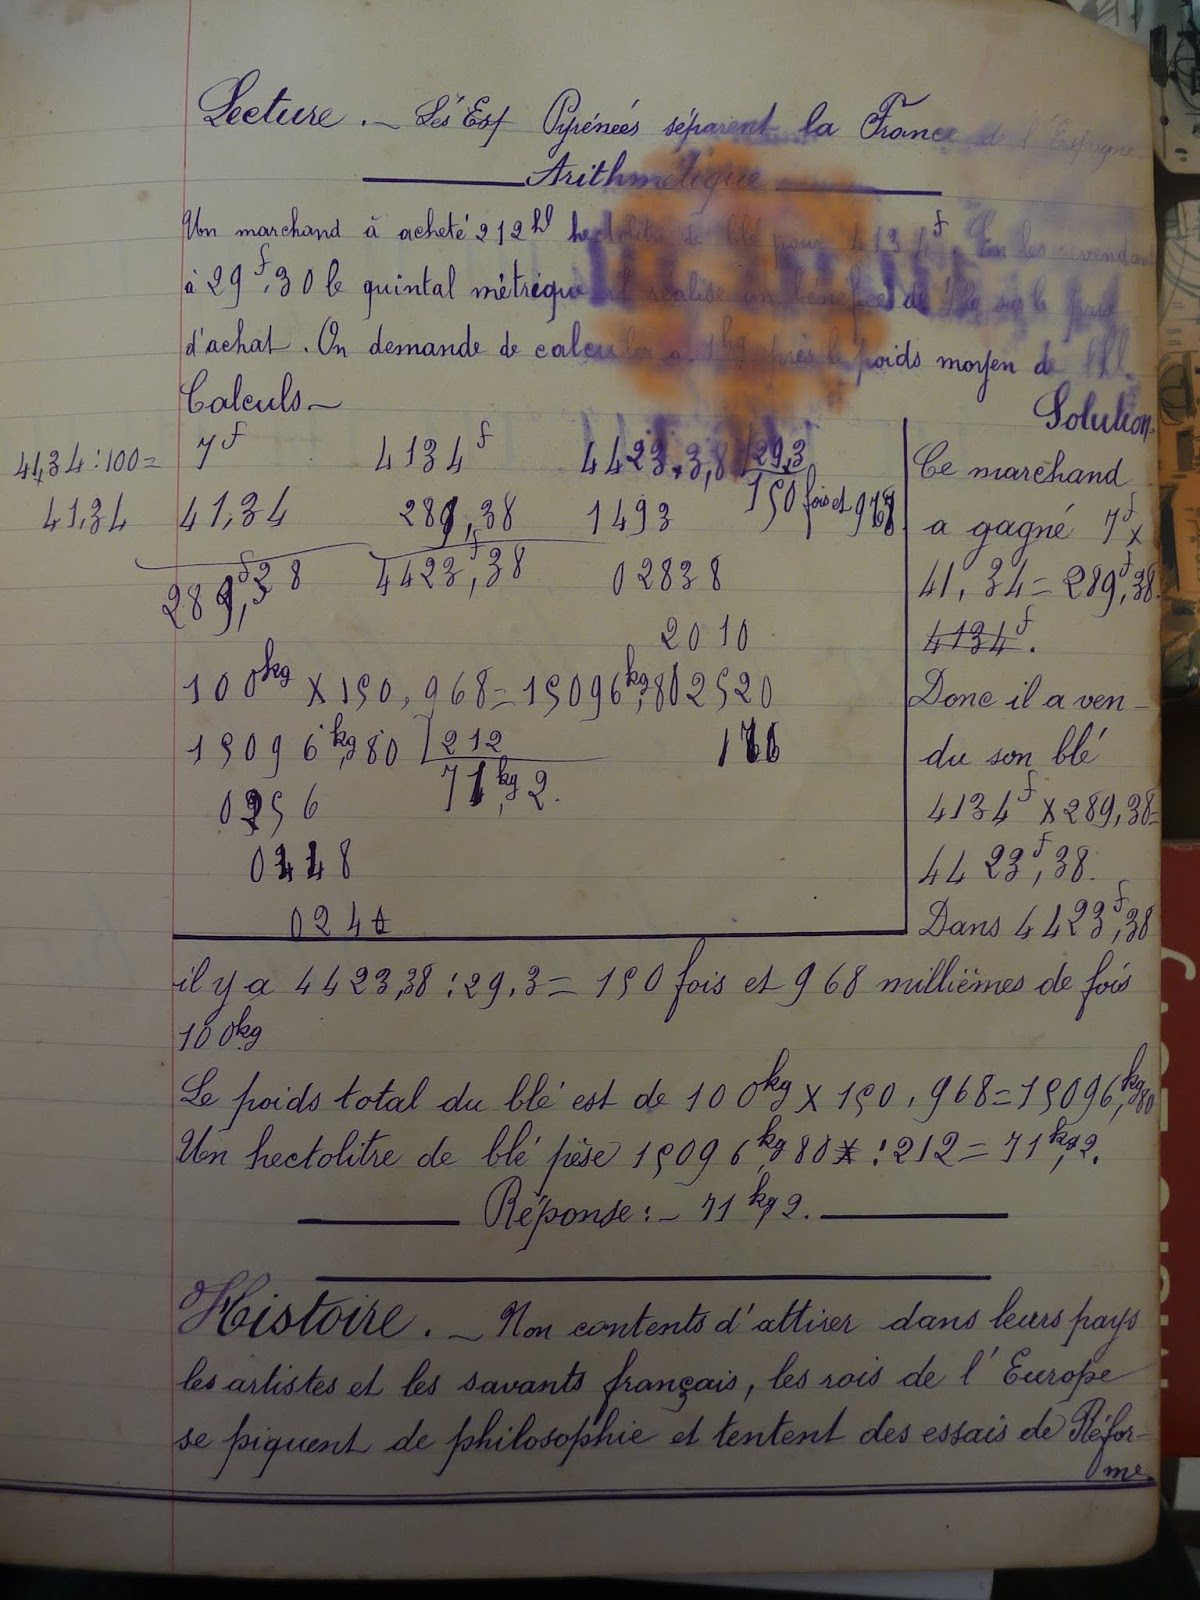 Lecture. — Les Esp Pyrénées séparent la France de l'Espagne
Arithmétique
Un marchand à acheté 212hl hectolitre de blé pour 4134f. En les revendant
à 29f,30 le quintal métrique il réalise un bénéfice de sur le prix
d'achat. On demande de calculer après le poids moyen de 1hl.
Calculs —
4434:100=
41,34
7f
41,34
289f,38
4134f
289,38
4423f,38
4423.3,8 29,3
1493 150 fois et 968
02838
2010
2520
176
100kg x 150,968=15096kg,80
15096kg,80 212
0256 71kg,2.
0448
024
Solution.
Ce marchand
a gagné 7f x
41,34=289f,38.
4134f.
Donc il a ven-
du son blé
4134f x 289,38=
4423f,38.
Dans 4423f,38
il y a 4423,38:29,3= 150 fois et 968 millièmes de fois
100kg
Le poids total du blé est de 100kg x 150,968=15096,kg80
Un hectolitre de blé pèse 15096kg,80 :212=71kg,2.
Réponse:- 71kg,2.
Histoire. — Non contents d'attirer dans leurs pays
les artistes et les savants français, les rois de l'Europe
se piquent de philosophie et tentent des essais de Réfor-
me